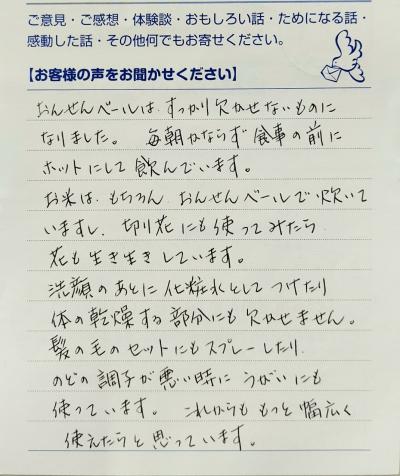 ご意見・ご感想・体験談・おもしろい話・ためになる話・
感動した話・その他何でもお寄せください。
【お客様の声をお聞かせください】
おんせんベールは、すっかり欠かせないものに
なりました。 毎朝かならず食事の前に
ホットにして飲んでいます。
お米は、もちろん、おんせんベールで炊いて
いますし、切り花にも使ってみたら
花も生き生きしています。
洗顔のあとに化粧水としてつけたり
体の乾燥する部分にも欠かせません。
髪の毛のセットにもスプレーしたり、
のどの調子が悪い時にうがいにも
使っています。 これからももっと幅広く
使えたらと思っています。